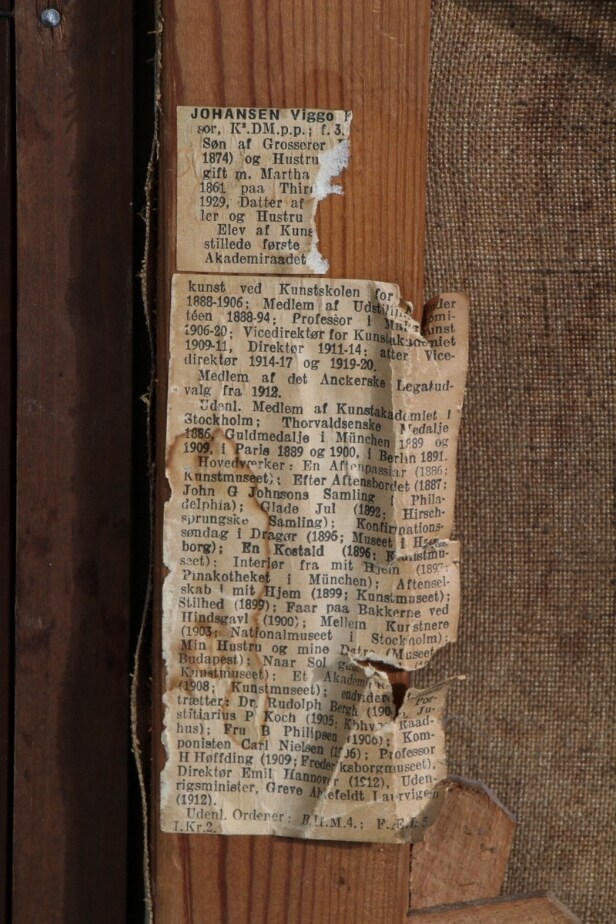 JOHANSEN Viggo
sor, K².DM.p.p.; f. 3.
Søn af Grosserer
1874) og Hustru
gift m. Martha
1861 paa
1929, Datter af
ler og Hustru
Elev af
stillede første
Akademiraadet
kunst ved Kunstskolen for
1888-1906; Medlem af
téen 1888-94; Professor i
1906-20; Vicedirektør for Kunstakademiet
1909-11, Direktør 1911-14; atter Vice-
direktør 1914-17 og 1919-20.
Medlem af det Anckerske Legatud-
valg fra 1912.
Udenl. Medlem af Kunstakademiet i
Stockholm; Thorvaldsenske Medalje
1886, Guldmedalje i München 1889 og
1909, i Paris 1889 og 1900, i Berlin 1891.
Hovedværker: En Aftenpassiar (1886;
Kunstmuseet); Efter Aftensbordet (1887;
John G Johnsons Samling i Phila-
delphia); Glade Jul (1892; Hirsch-
sprungske Samling); Konfirmations-
søndag i Dragør (1896; Museet i
borg); En Kostald (1896; Kunstmu-
seet); Interiør fra mit Hjem (1897;
Pinakotheket i München); Aftensel-
skab i mit Hjem (1899; Kunstmuseet);
Stilhed (1899); Faar paa Bakkerne ved
Hindsgavl (1900); Mellem Kunstnere
(1903; Nationalmuseet i Stockholm);
Min Hustru og mine Døtre (Museet
Budapest); Naar Sol
Kunstmuseet); Et
(1908; Kunstmuseet); endvidere Por-
trætter: Dr. Rudolph Bergh Ju-
stitiarius P Koch (1905; Kbhvs Raad-
hus); Fru B Philipsen (1906); Kom-
ponisten Carl Nielsen (1906); Professor
H Høffding (1909; Frederiksborgmuseet),
Direktør Emil Hannover (1912), Uden-
rigsminister, Greve Ahlefeldt Laurvigen
(1912).
Udenl. Ordener: F.Æ.L.5.
I.Kr.2.